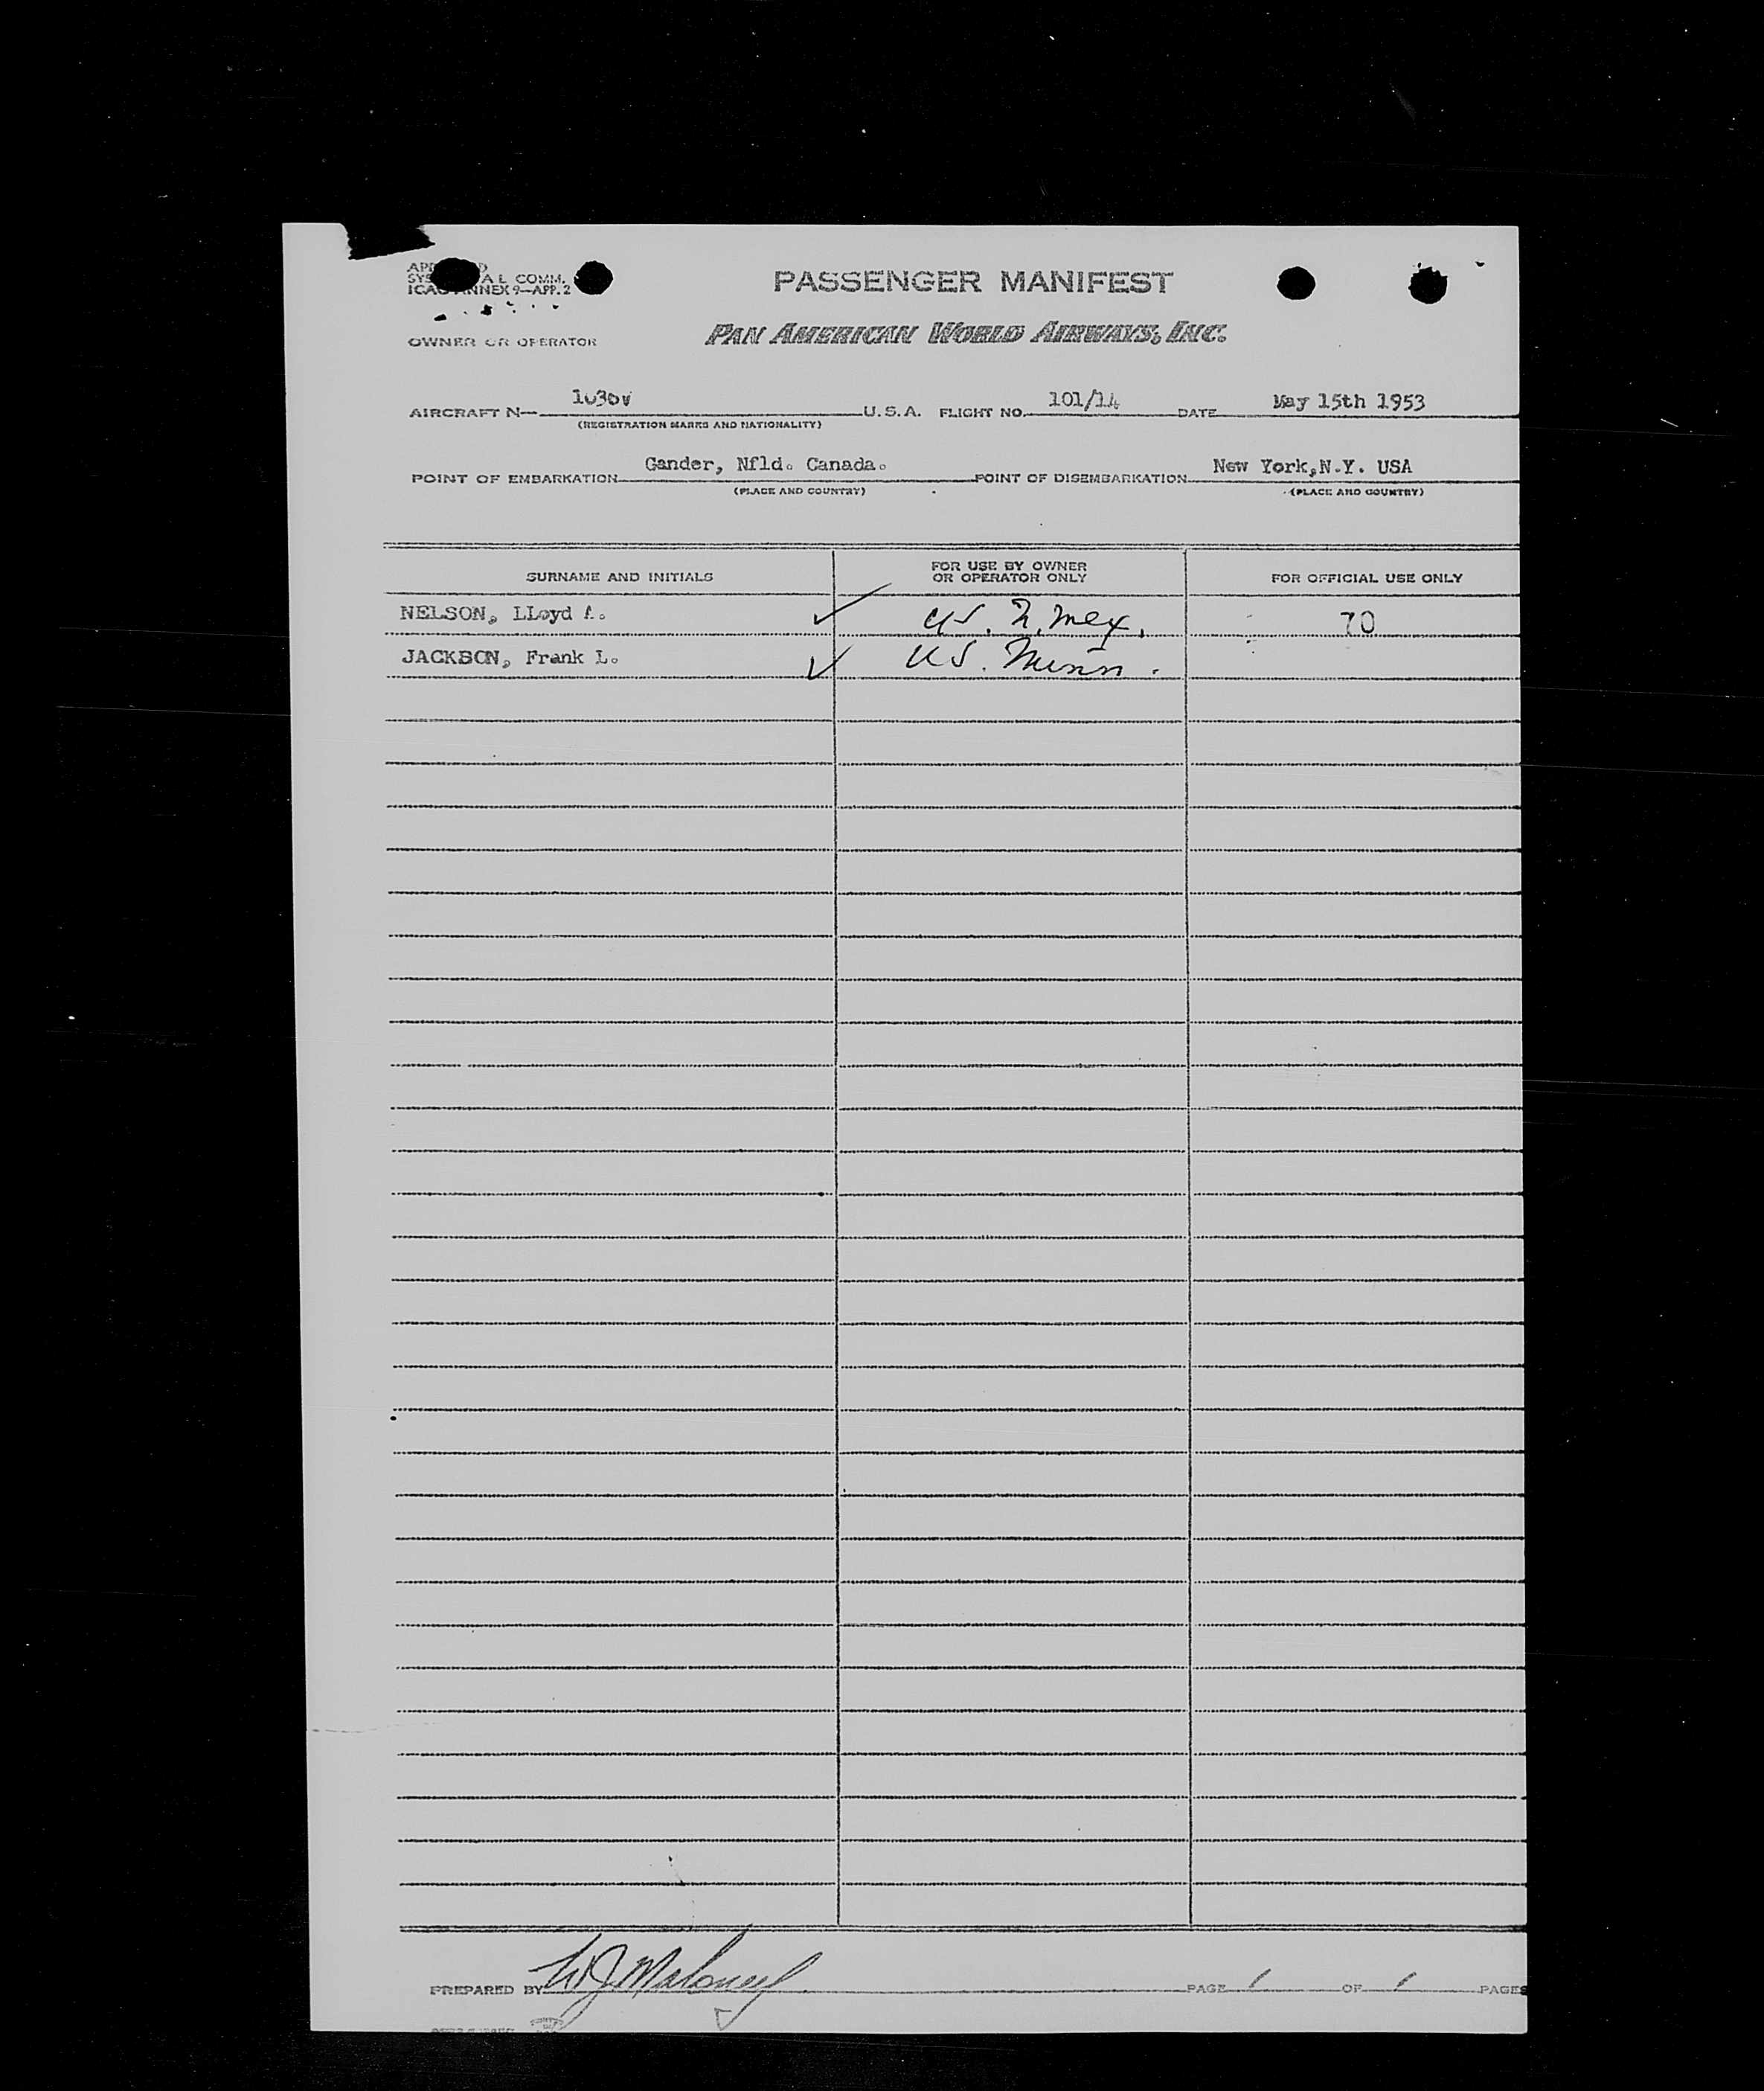 PASSENGER MANIFEST
COMM.
ANNEX 9—APP. 2
OWNER OR OPERATOR
PAN AMERICAN WORLD AIRWAYS, INC.
AIRCRAFT N— U.S.A. FLIGHT NO. 101/14 DATE May 15th 1953
(REGISTRATION MARKS AND NATIONALITY)
POINT OF EMBARKATION Gander, Nfld. Canada. POINT OF DISEMBARKATION New York,N.Y. USA
(PLACE AND COUNTRY) (PLACE AND COUNTRY)
SURNAME AND INITIALS FOR USE BY OWNER OR OPERATOR ONLY FOR OFFICIAL USE ONLY
NELSON, LLoyd A. US. N. Mex. 70
JACKSON, Frank L. US. Minn.
PREPARED BY W J Maloney PAGE 1 OF 1 PAGES